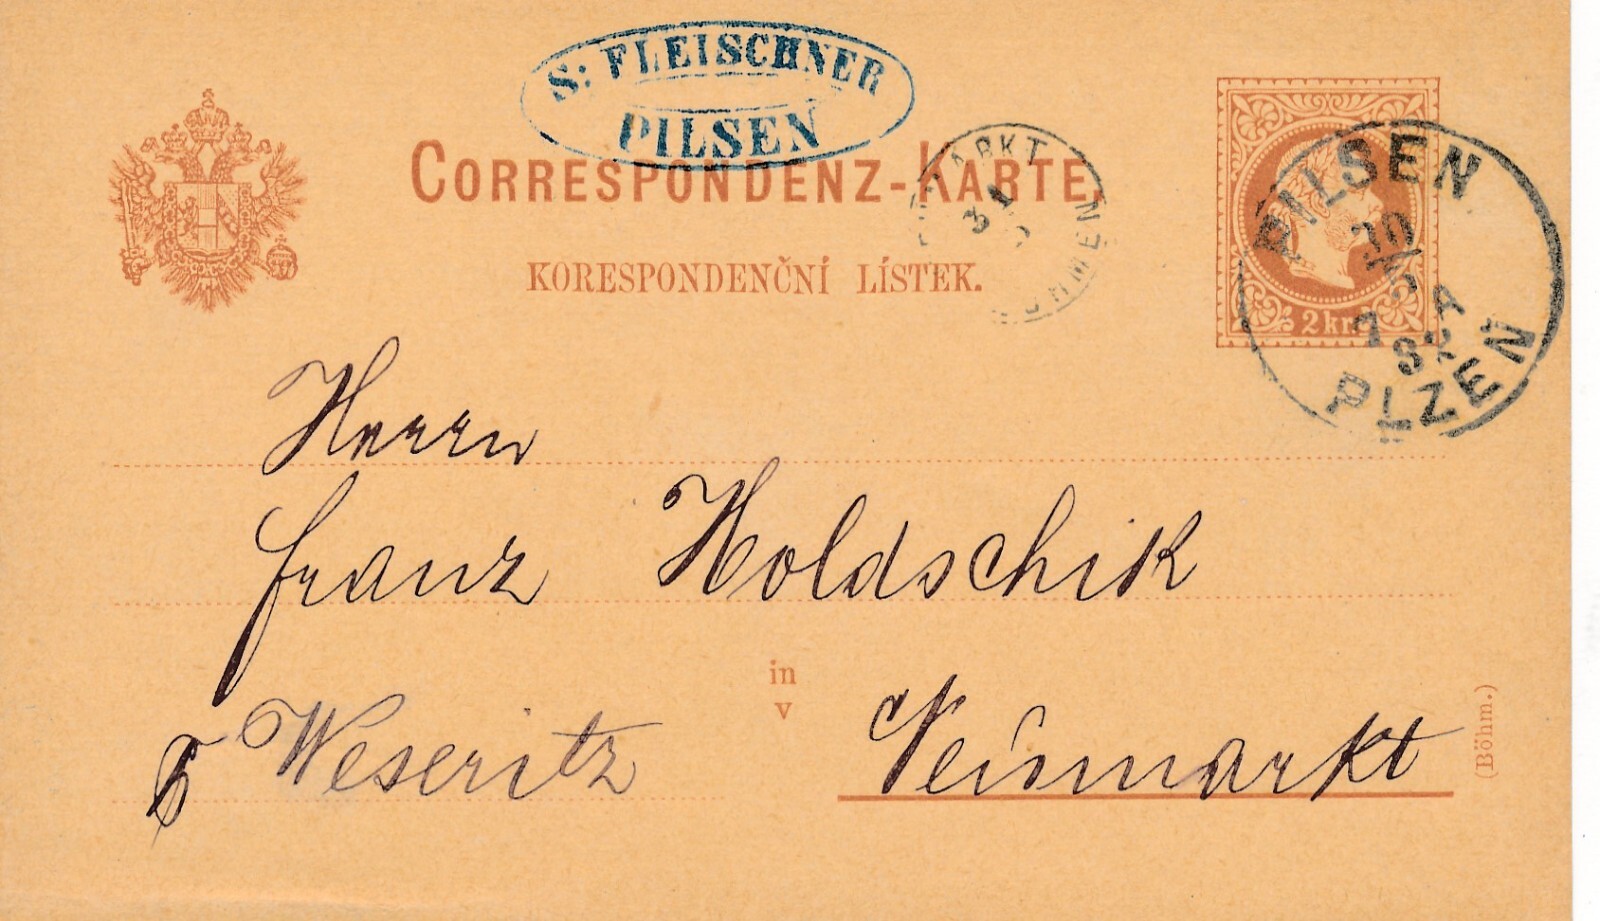 S: FLEISCHNER
PILSEN
CORRESPONDENZ-KARTE.
KORESPONDENČNÍ LÍSTEK.
31
2 kr.
PILSEN
30
7 A
82
PLZEŇ
Herrn
Franz Holdschik
in
v
Weseritz Neumarkt
(Böhm.)